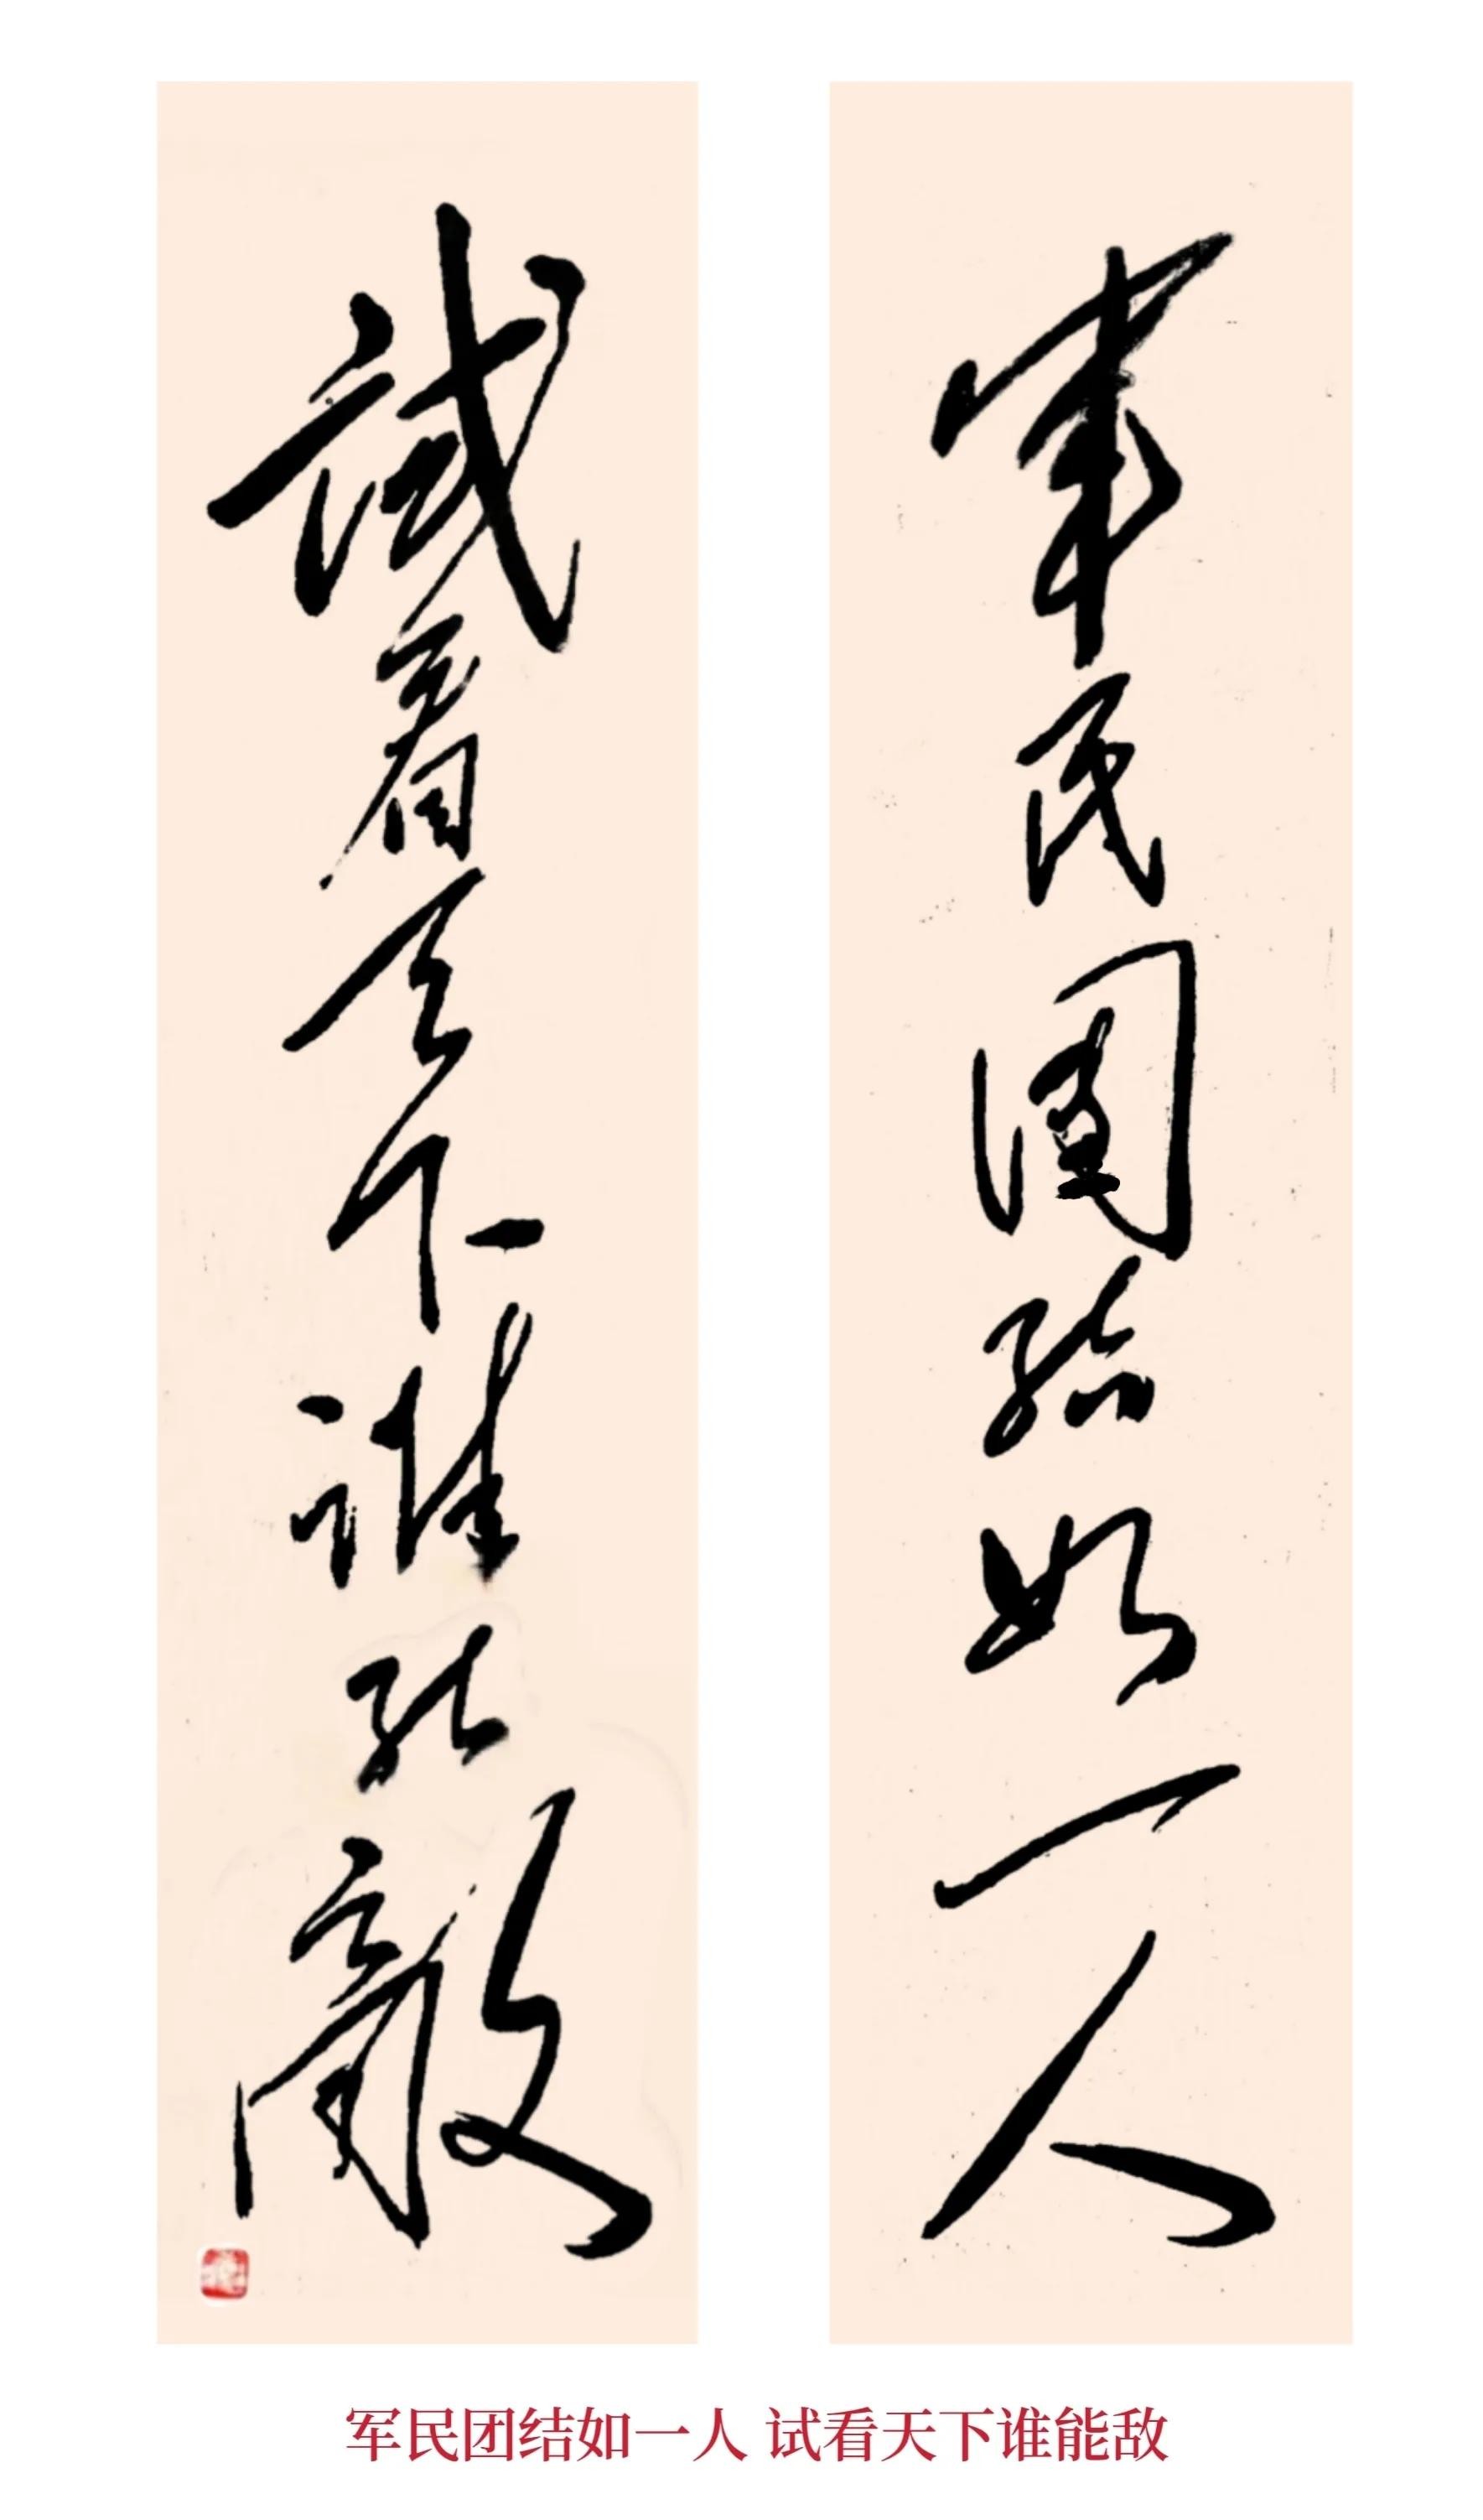 軍民團結如一人
試看天下誰能敵
军民团结如一人 试看天下谁能敌